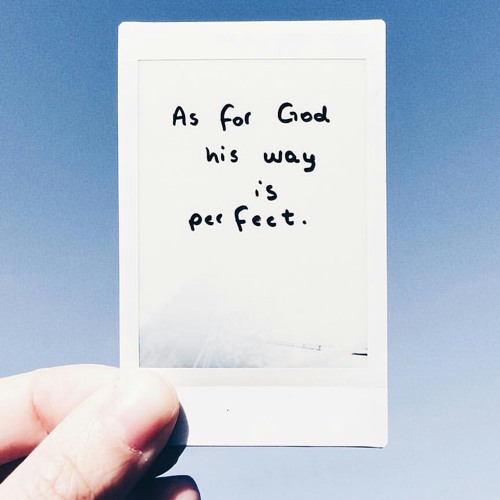 As for God
his way
is
perfect.